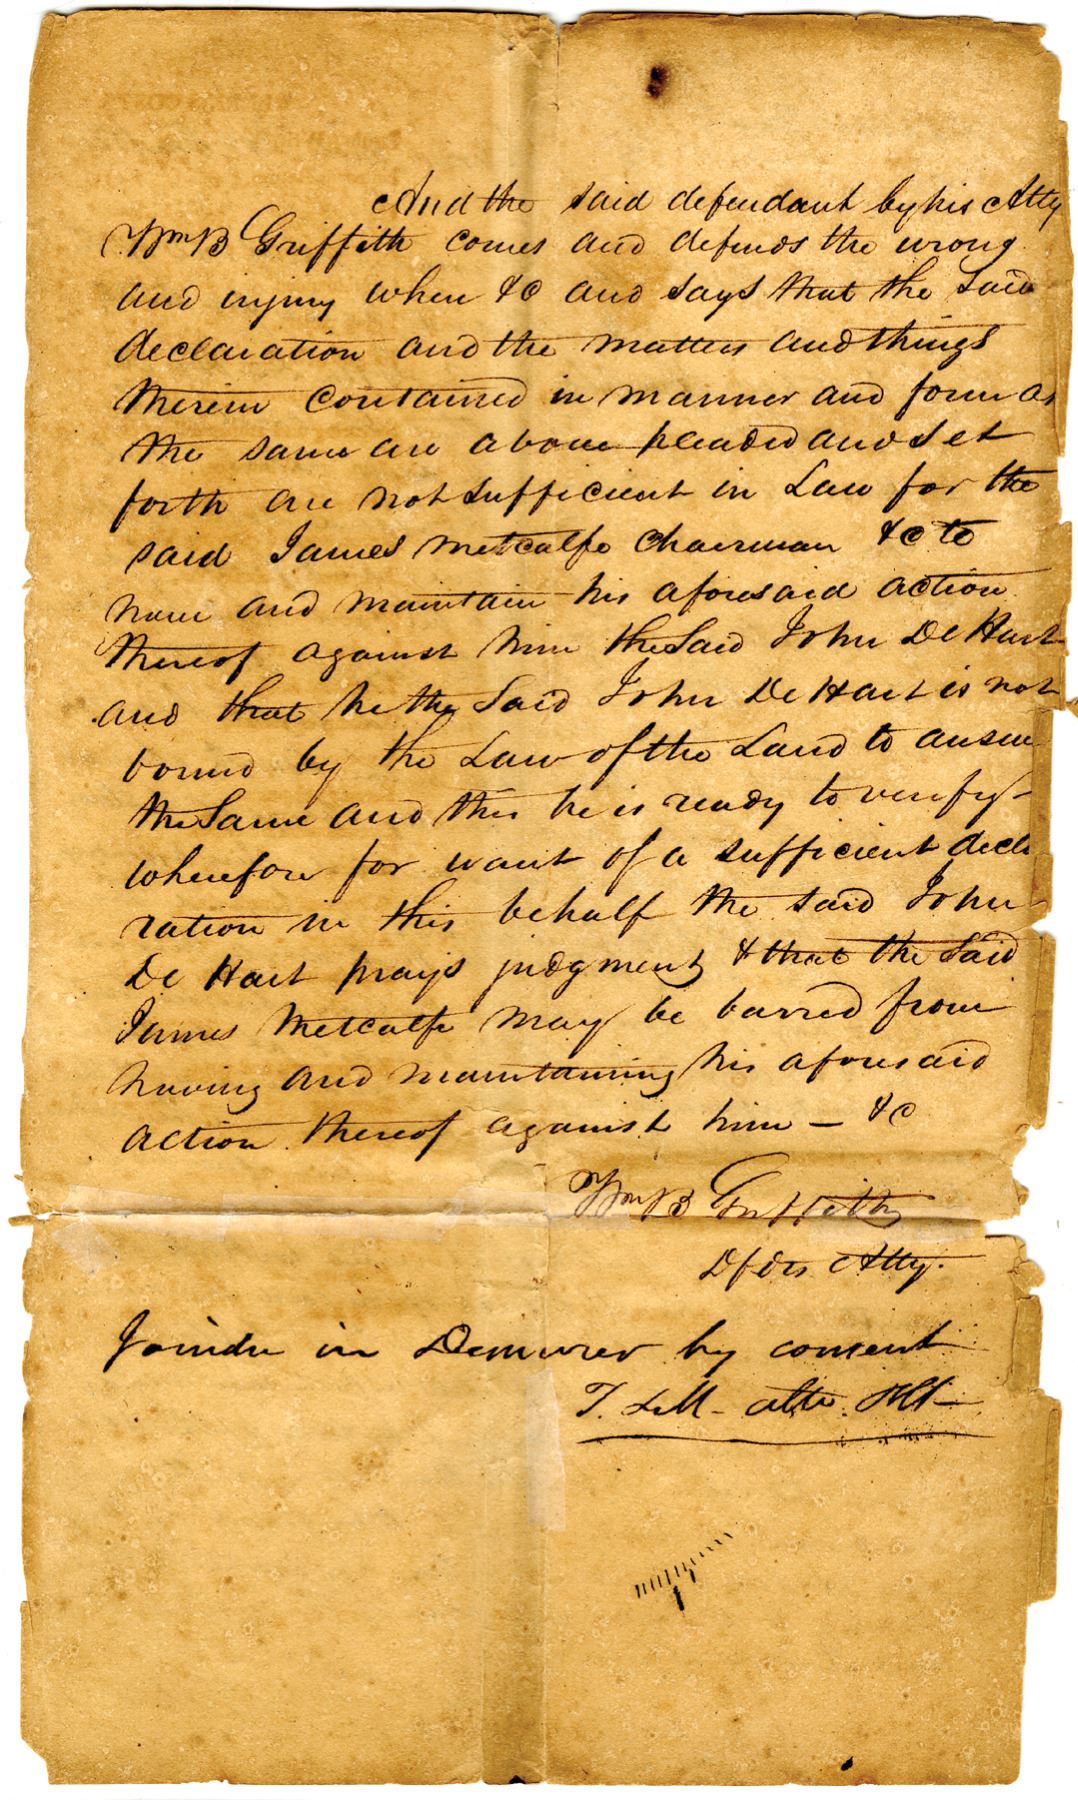 And the said defendant by his Atty
Wm B Griffith comes and defends the wrong
and injury when &c and says that the said
declaration and the matters and things
therein contained in manner and form as
the same are above pleaded and set
forth are not sufficient in Law for the
said James Metcalfe Chairman &c to
have and maintain his aforesaid action
thereof against him the Said John De Hart
and that he the Said John De Hart is not
bound by the Law of the Land to answer
the Same and this he is ready to verify -
wherefore for want of a sufficient decla
ration in this behalf the said John
De Hart prays judgment & that the Said
James Metcalfe may be barred from
having and maintaining his aforesaid
action thereof against him — &c
Wm B Griffith
Dfdts Atty.
Joinder in Demurrer by consent
T.